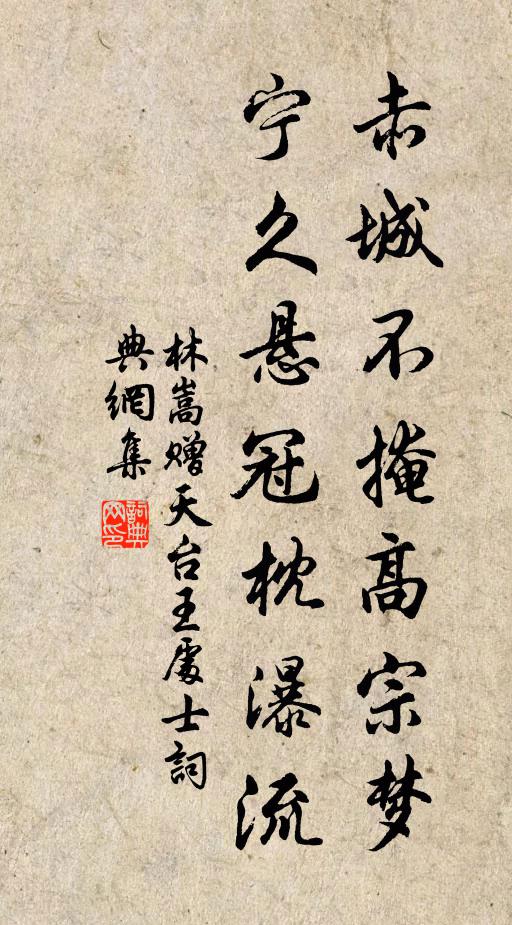 赤城不掩高宗梦
宁久悬冠枕瀑流
林嵩赠天台王處士詞
典網集
詞典
网印